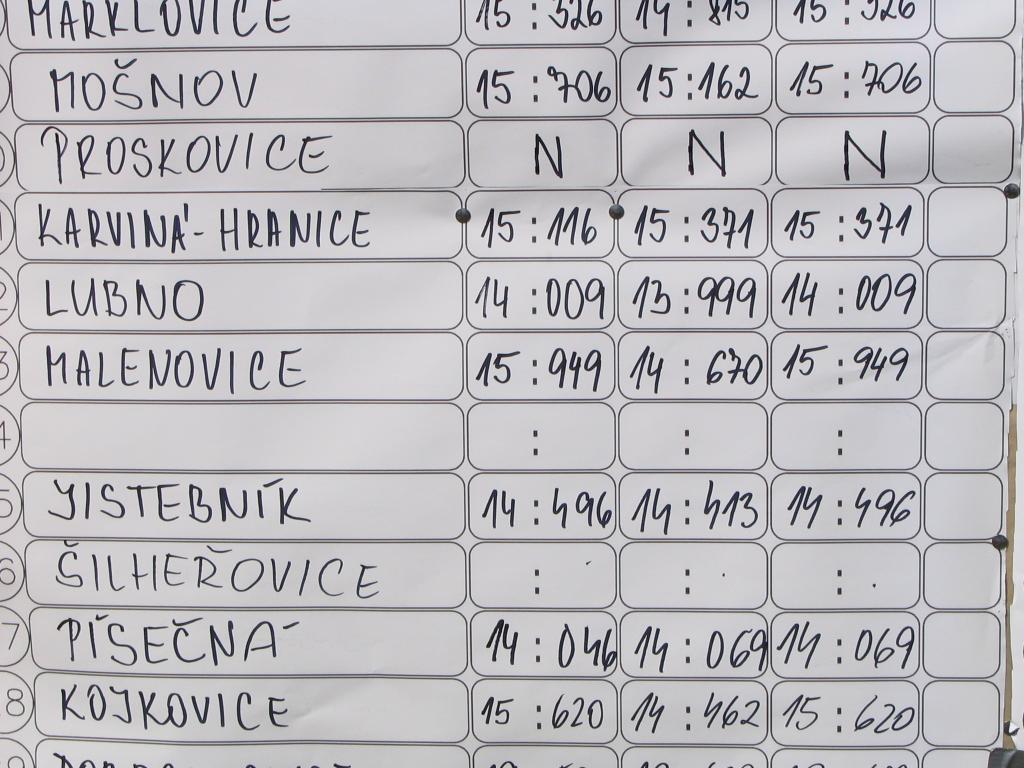 MARKLOVICE 15 : 326 14 : 815 15 : 326
MOŠNOV 15 : 706 15 : 162 15 : 706
0 PROSKOVICE N N N
1 KARVINÁ-HRANICE 15 : 116 15 : 371 15 : 371
2 LUBNO 14 : 009 13 : 999 14 : 009
3 MALENOVICE 15 : 949 14 : 670 15 : 949
4 : : :
5 JISTEBNÍK 14 : 496 14 : 413 14 : 496
6 ŠILHEŘOVICE : : :
7 PÍSEČNÁ 14 : 046 14 : 069 14 : 069
8 KOJKOVICE 15 : 620 14 : 462 15 : 620